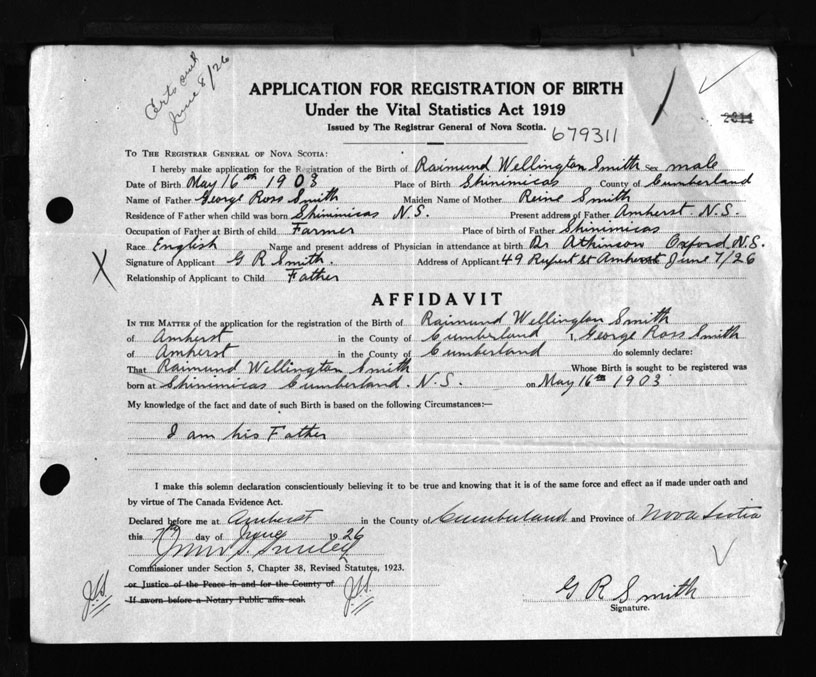 Certs out
June 8/26
APPLICATION FOR REGISTRATION OF BIRTH
Under the Vital Statistics Act 1919
Issued by The Registrar General of Nova Scotia.
679311
TO THE REGISTRAR GENERAL OF NOVA SCOTIA:
I hereby make application for the Registration of the Birth of Raimund Wellington Smith Sex male
Date of Birth May 16th 1903 Place of Birth Shinimicas County of Cumberland
Name of Father George Ross Smith Maiden Name of Mother Reine Smith
Residence of Father when child was born Shinimicas N.S. Present address of Father Amherst N.S.
Occupation of Father at Birth of child Farmer Place of birth of Father Shinimicas
Race English Name and present address of Physician in attendance at birth Dr Atkinson Oxford, N.S.
Signature of Applicant G R Smith. Address of Applicant 49 Rupert St Amherst June 7/26
Relationship of Applicant to Child Father
AFFIDAVIT
IN THE MATTER of the application for the registration of the Birth of Raimund Wellington Smith
of Amherst in the County of Cumberland I, George Ross Smith
of Amherst in the County of Cumberland do solemnly declare:
That Raimund Wellington Smith Whose Birth is sought to be registered was
born at Shinimicas Cumberland. N.S. on May 16th 1903
My knowledge of the fact and date of such Birth is based on the following Circumstances:—
I am his Father
I make this solemn declaration conscientiously believing it to be true and knowing that it is of the same force and effect as if made under oath and
by virtue of The Canada Evidence Act.
Declared before me at Amherst in the County of Cumberland and Province of Nova Scotia
this 7th day of June 1926
Commissioner under Section 5, Chapter 38, Revised Statutes, 1923.
or Justice of the Peace in and for the County of
If sworn before a Notary Public affix seal
G R Smith
Signature.